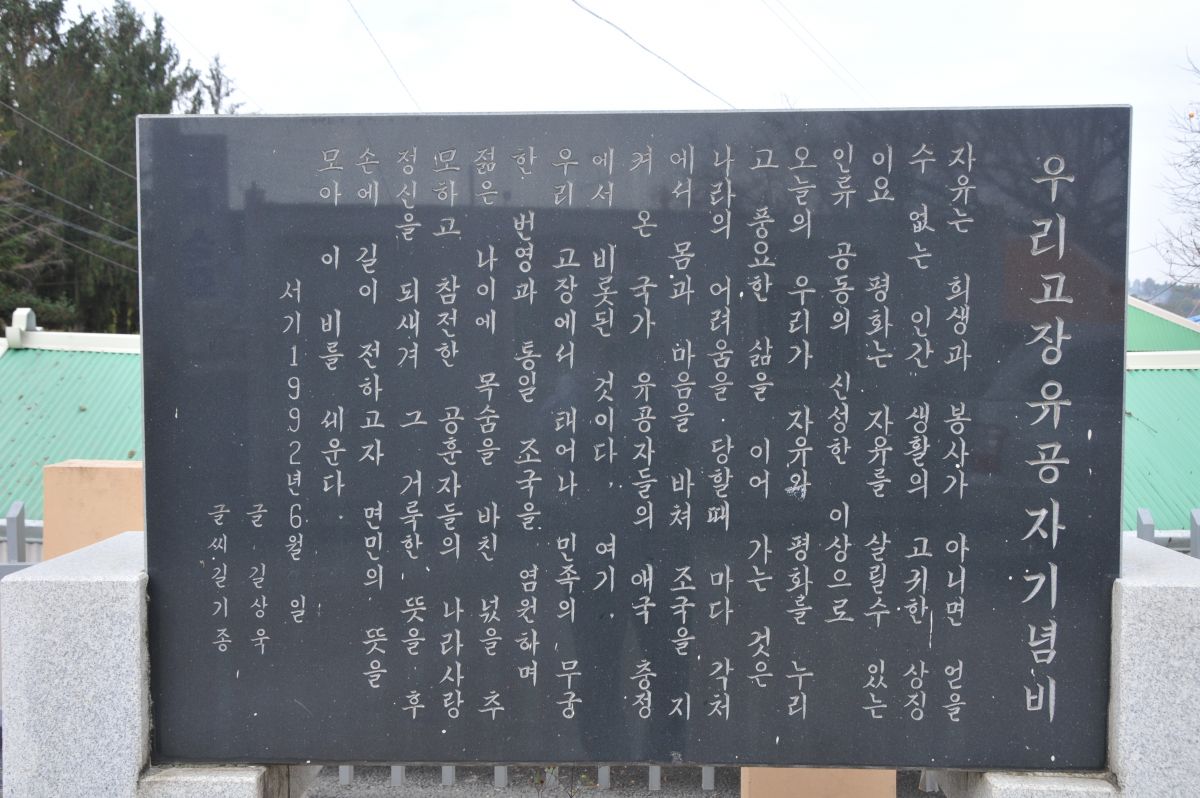 우리고장유공자기념비
자유는 희생과 봉사가 아니면 얻을
수 없는 인간 생활의 고귀한 상징
이요 평화는 자유를 살릴수 있는
인류 공동의 신성한 이상으로
오늘의 우리가 자유와 평화를 누리
고 풍요한 삶을 이어 가는 것은
나라의 어려움을 당할때 마다 각처
에서 몸과 마음을 바쳐 조국을 지
켜 온 국가 유공자들의 애국 충정
에서 비롯된 것이다. 여기.
우리 고장에서 태어나 민족의 무궁
한 번영과 통일 조국을 염원하며
젊은 나이에 목숨을 바친 넋을 추
모하고 참전한 공훈자들의 나라사랑
정신을 되새겨 그 거룩한 뜻을 후
손에 길이 전하고자 면민의 뜻을
모아 이 비를 세운다.
서기1992년6월 일
글 길상욱
글씨길기종